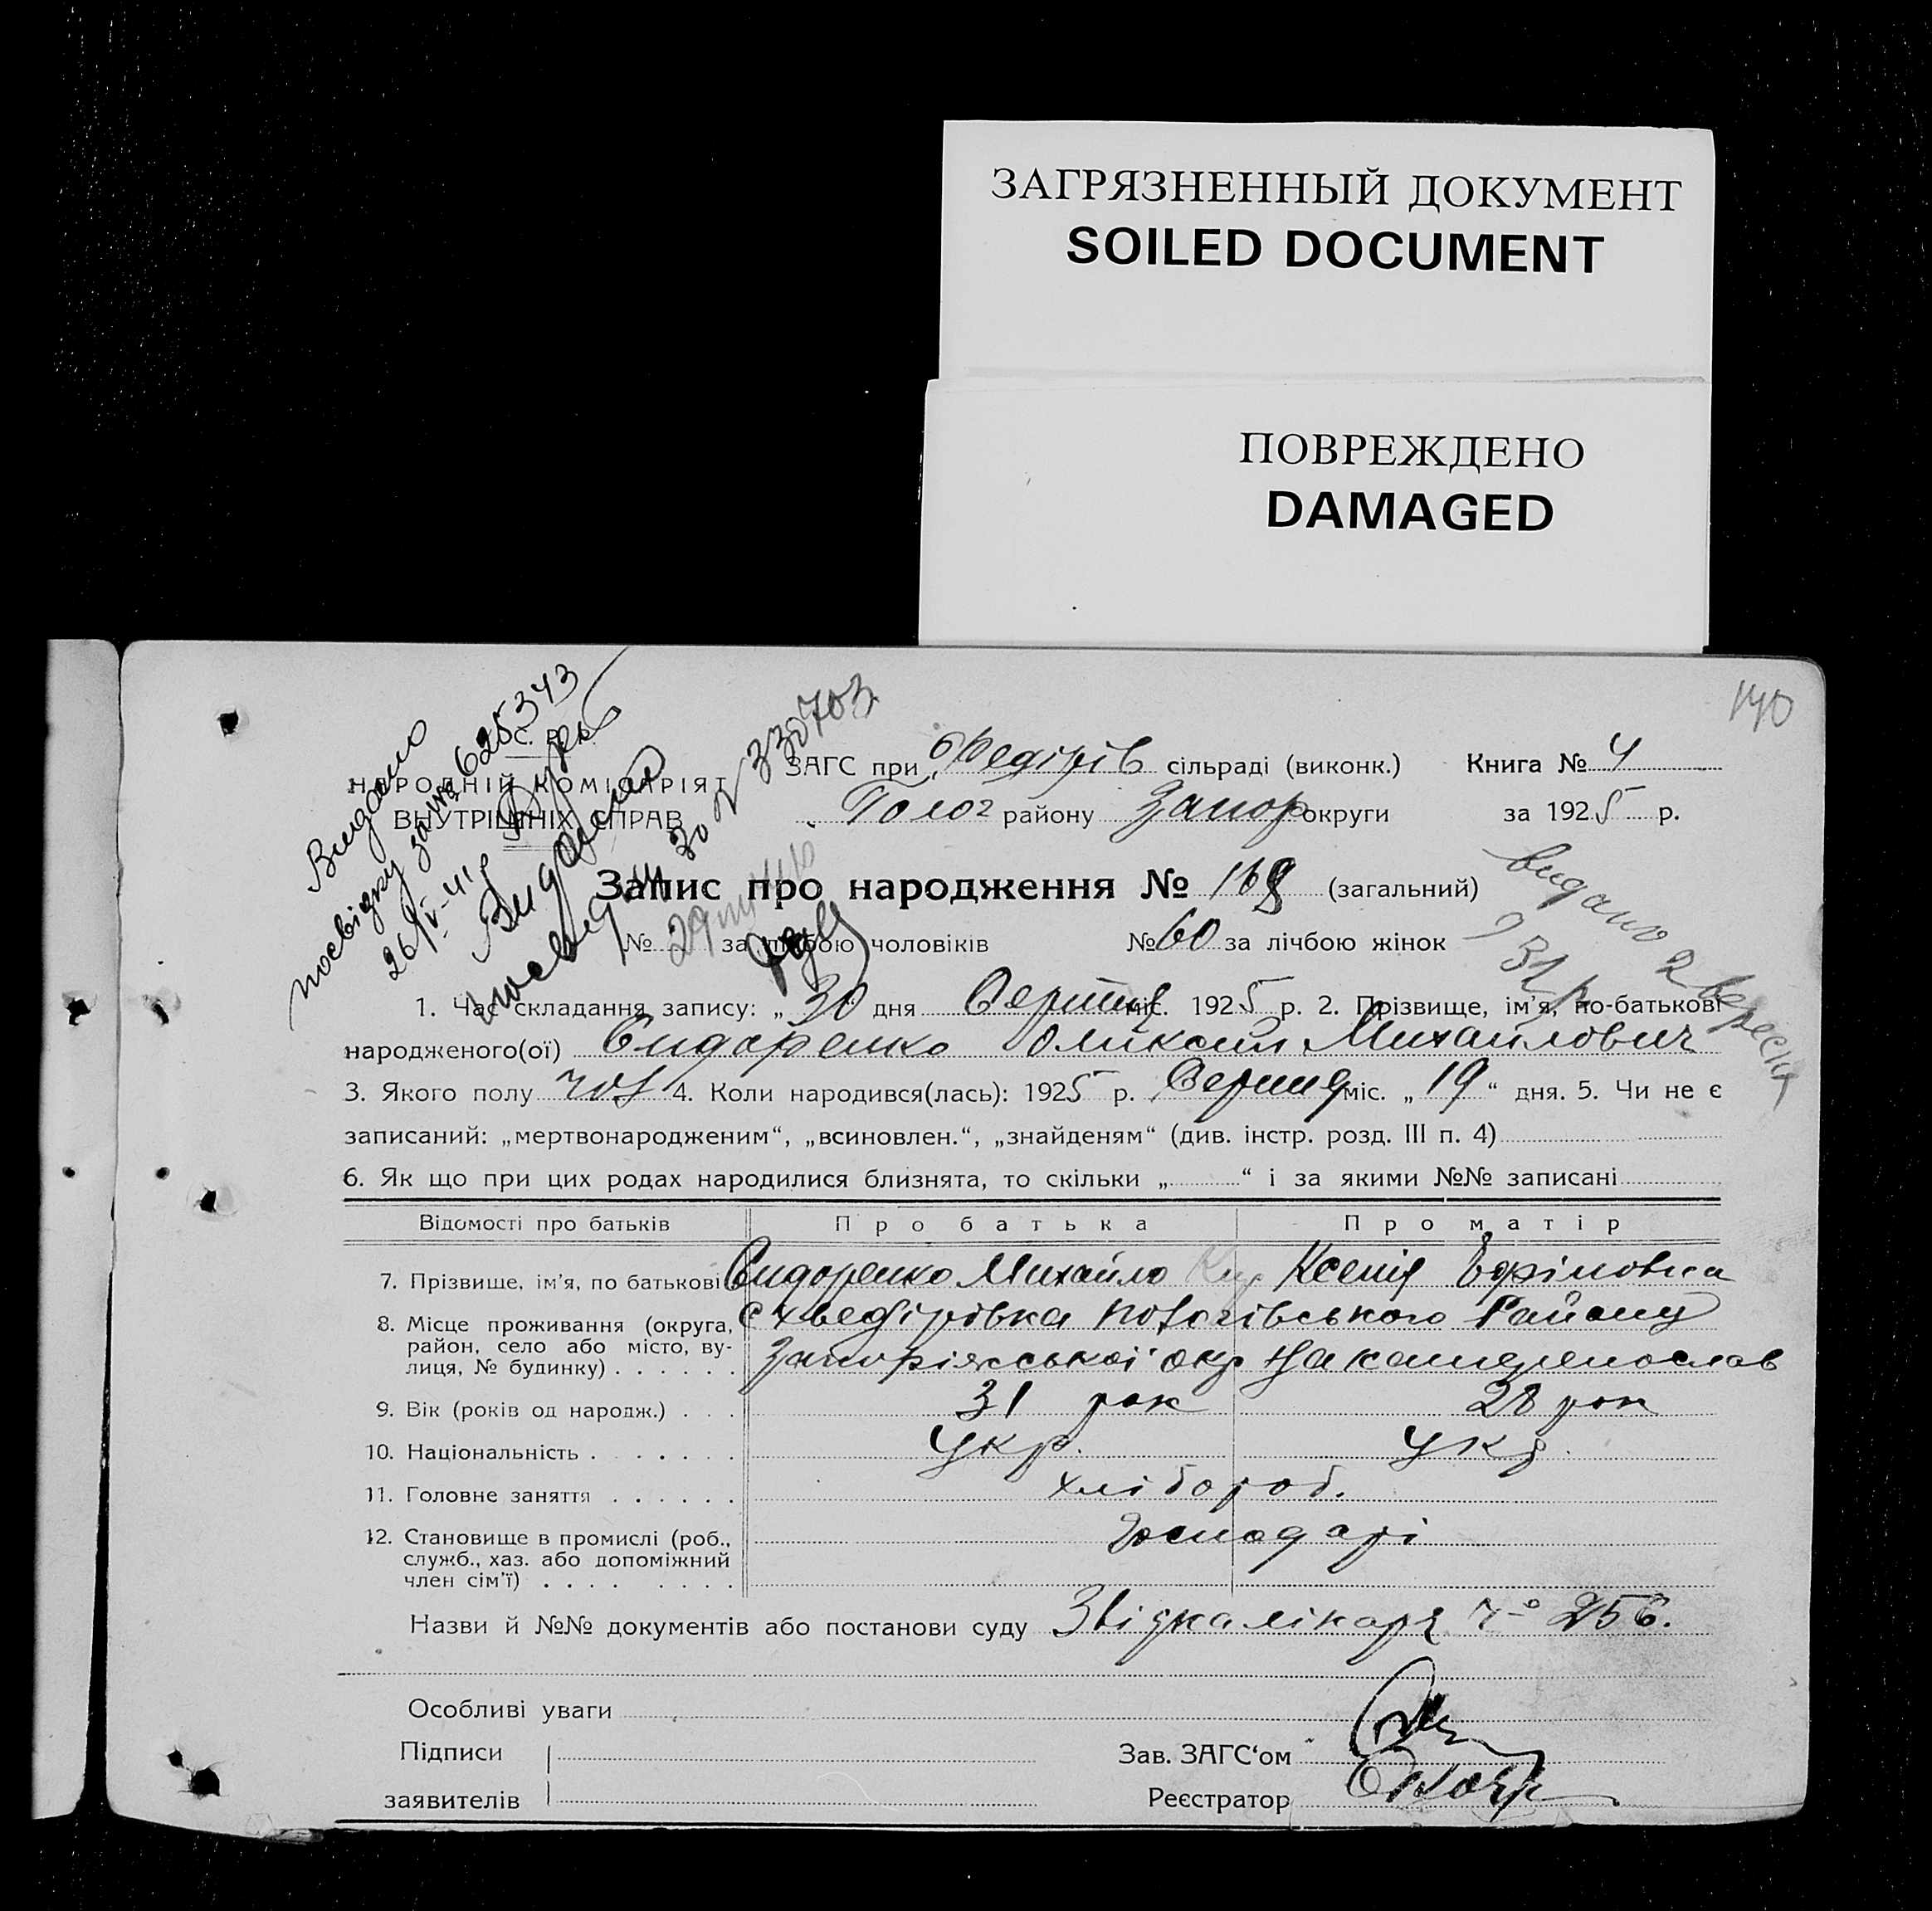 ЗАГРЯЗНЕННЫЙ ДОКУМЕНТ
SOILED DOCUMENT
ПОВРЕЖДЕНО
DAMAGED
140
Видано
посвідку за № 625343
26/IV-41 р
Видано
30 330703
НАРОДНІЙ КОМІСАРІЯТ
ВНУТРІШНІХ СПРАВ
ЗАГС при Федірів сільраді (виконк.) Книга № 4
Полог району Запор округи за 1925 р.
Запис про народження № 168 (загальний)
видано 2 вересня
31 р
№ за лічбою чоловіків № 60 за лічбою жінок
1. Час складання запису: „ 30 дня Серпня міс. 1925 р. 2. Прізвище, ім'я, по-батькові
народженого(ої) Сидоренко Оликсий Михайлович
3. Якого полу чол 4. Коли народився(лась): 1925 р. Серпня міс. „ 19 “ дня. 5. Чи не є
записаний: „мертвонародженим“, „всиновлен.“, „знайденям“ (див. інстр. розд. III п. 4)
6. Як що при цих родах народилися близнята, то скільки „ “ і за якими №№ записані
Відомості про батьків Про батька Про матір
7. Прізвище, ім'я, по батькові Сидоренко Михайло Ксенія Єфімовна
8. Місце проживання (округа, район, село або місто, вулиця, № будинку) с Хведірівка Пологівського Району
Запоріжської окр на Катеренослав
9. Вік (років од народж.) 31 рок 28 рок
10. Національність Укр. Укр.
11. Головне заняття хлібороб.
12. Становище в промислі (роб., служб., хаз. або допоміжний член сім'ї) Господарі
Назви й №№ документів або постанови суду Звідка лікаря 256.
Особливі уваги
Підписи
Зав. ЗАГС'ом
заявителів
Реєстратор